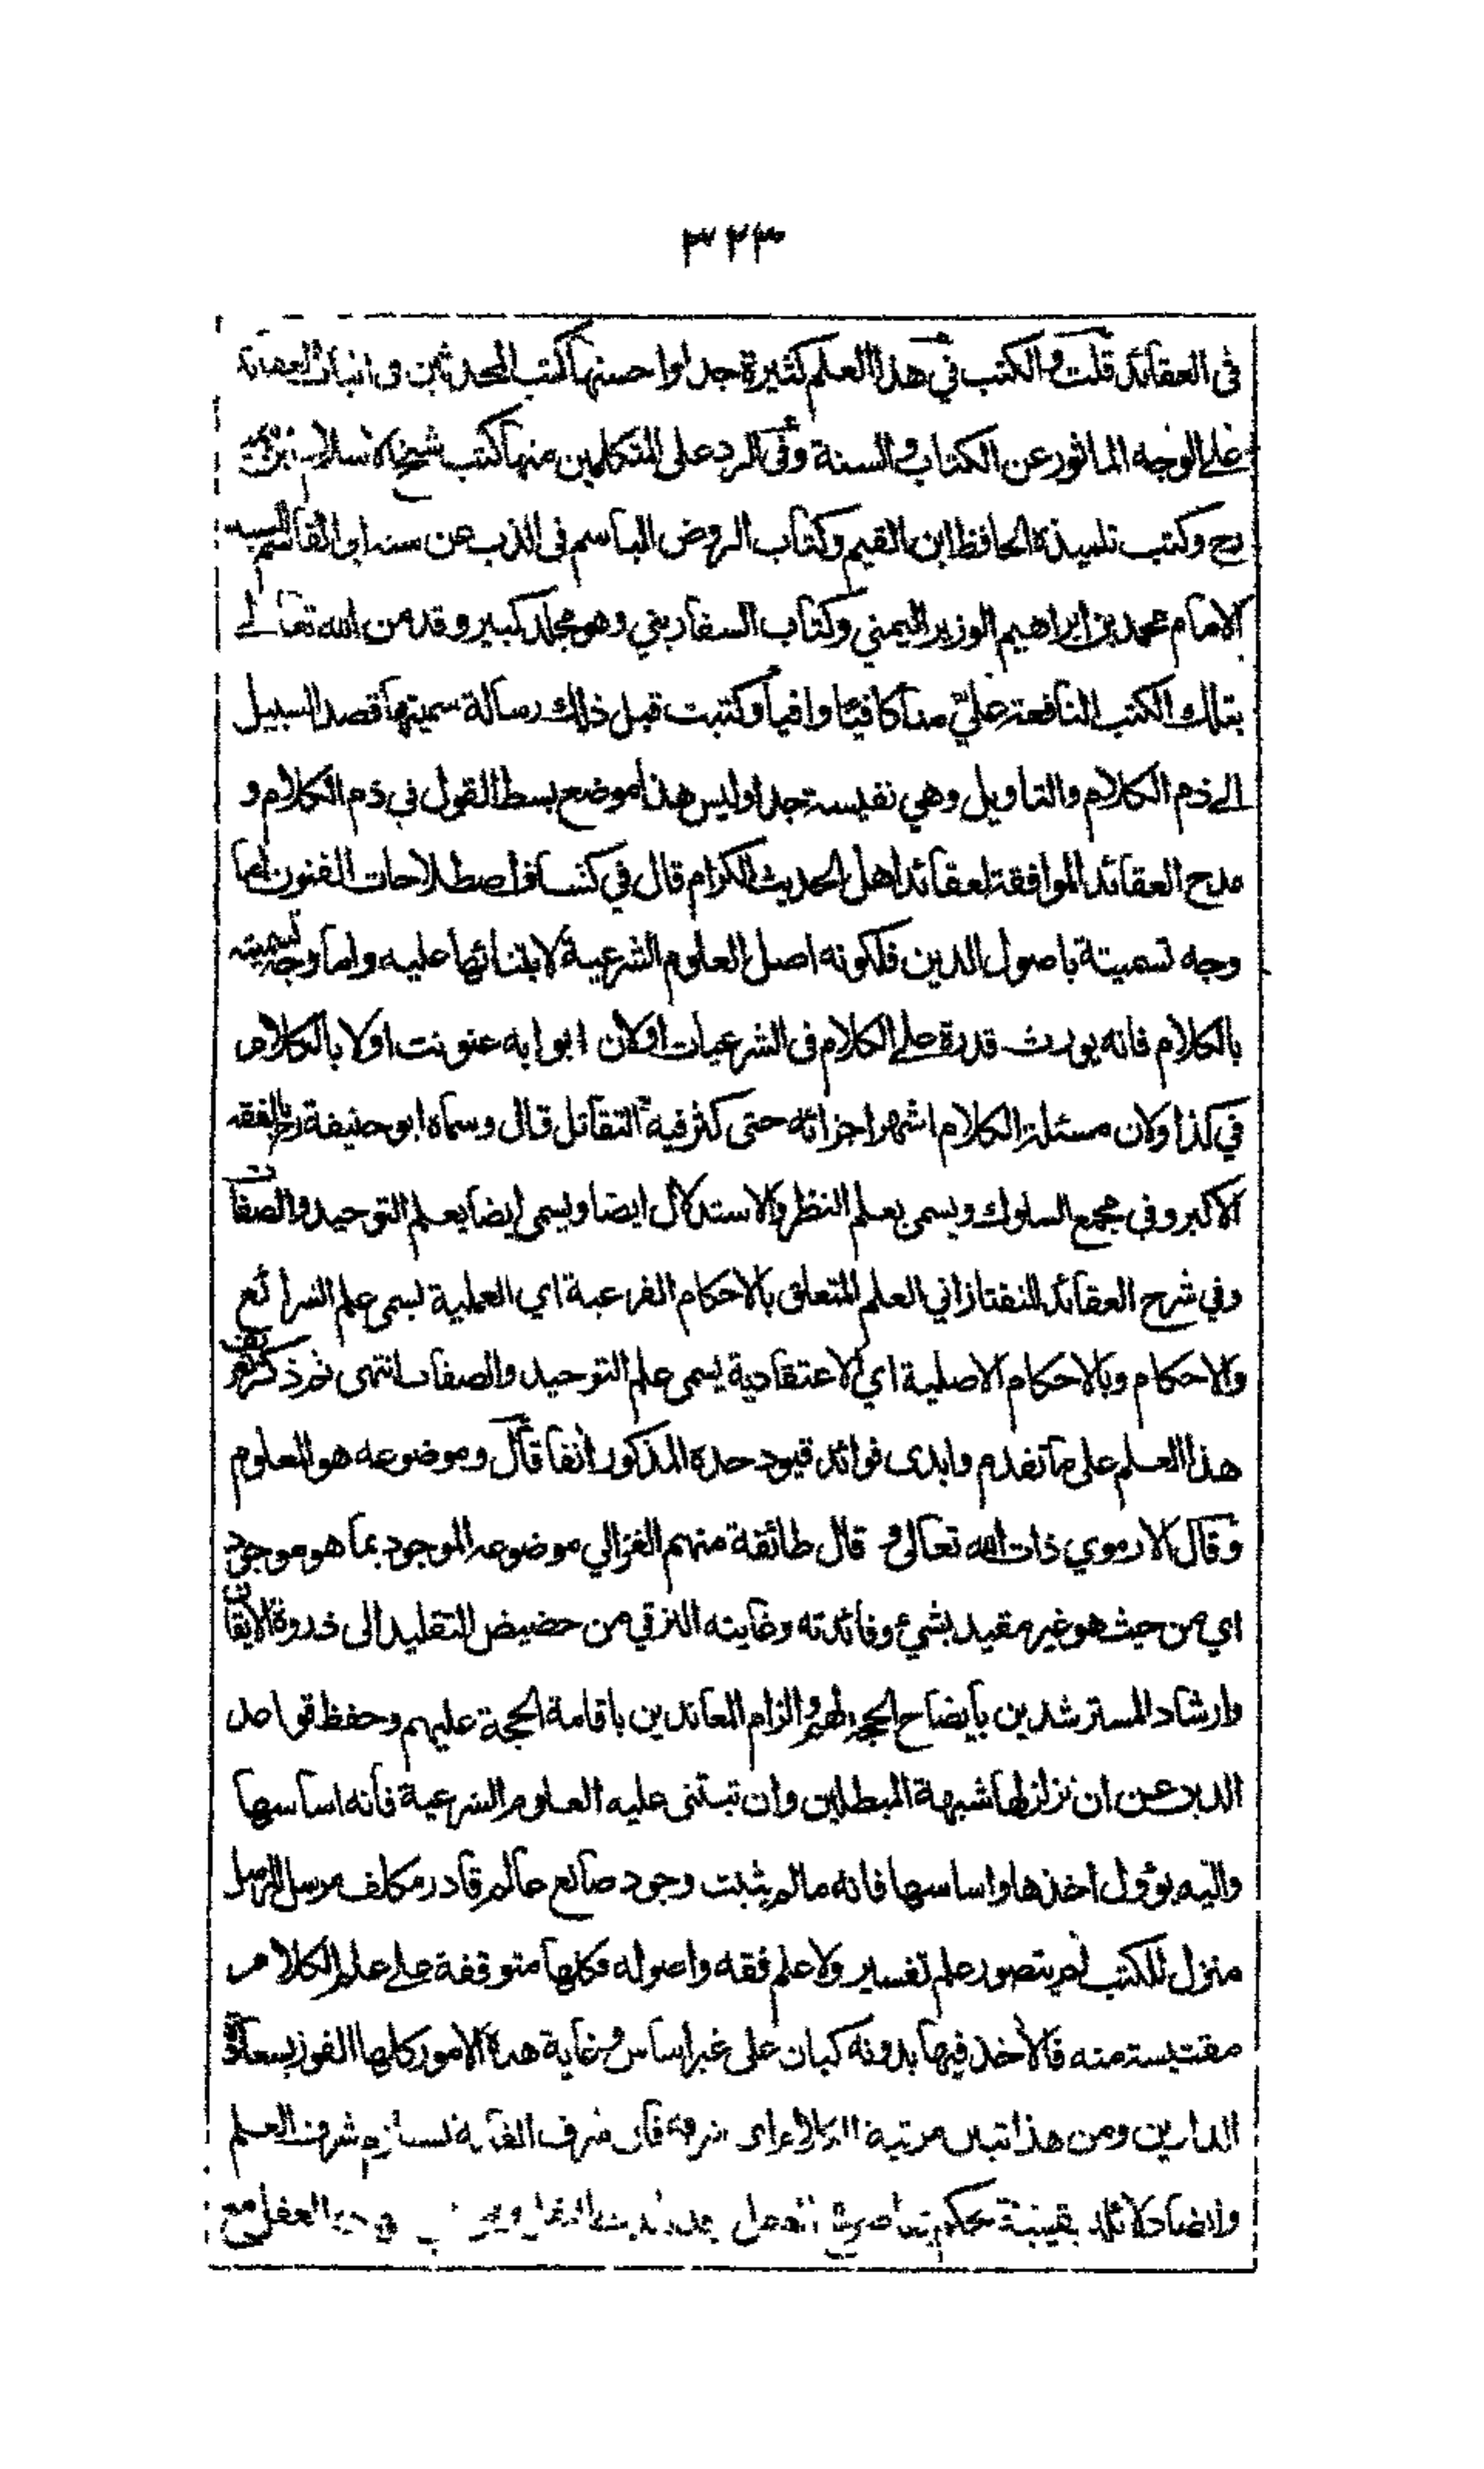 ٣٢٣
في العقائد قلت والكتب في هذا العلم كثيرة جدا واحسنها كتب المحدثين في اثبات العقائد
على الوجه الماثور عن الكتاب والسنة وفي الرد على المتكلمين منها كتب شيخ الاسلام ابن تيمية
رح وكتب تلميذه الحافظ ابن القيم وكتاب الروض الباسم في الذب عن سنة ابي القاسم للسيد
الامام محمد بن ابراهيم الوزير اليمني وكتاب السفاريني وهو مجلد كبير وقد من الله تعالى
بتلك الكتب النافعة عليّ منا كافيا وافيا وكتبت قبل ذلك رسالة سميتها قصد السبيل
الى ذم الكلام والتاويل وهي نفيسة جدا وليس هذا موضع بسط القول في ذم الكلام و
مدح العقائد الموافقة لعقائد اهل الحديث الكرام قال في كشاف اصطلاحات الفنون اما
وجه تسميتة باصول الدين فلكونه اصل العلوم الشرعية لابتنائها عليه واما وجه تسميته
بالكلام فانه يورث قدرة على الكلام في الشرعيات اولان ابوابه عنونت اولا بالكلام
في كذا ولان مسئلة الكلام اشهر اجزائه حتى كثر فيه التقاتل قال وسماه ابو حنيفة رح بالفقه
الاكبر وفي مجمع السلوك ويسمى بعلم النظر والاستدلال ايضا ويسمى ايضا بعلم التوحيد والصفات
وفي شرح العقائد للتفتازاني العلم المتعلق بالاحكام الفرعية اي العملية يسمى علم الشرائع
والاحكام وبالاحكام الاصلية اي الاعتقادية يسمى علم التوحيد والصفات انتهى ثم ذكر تعريف
هذا العلم على ما تقدم وابدى فوائد قيود حده المذكور انفا قال وموضوعه هو المعلوم
وقال الارموي ذات الله تعالى و قال طائفة منهم الغزالي موضوعه الموجود بما هو موجود
اي من حيث هو غير مقيد بشيء وفائدته وغايته الترقي من حضيض التقليد الى ذروة الايقان
وارشاد المسترشدين بايضاح الحجة لهم والزام المعاندين باقامة الحجة عليهم وحفظ قواعد
الدين عن ان تزلزلها شبهة المبطلين وان تبتنى عليه العلوم الشرعية فانه اساسها
واليه يؤول اخذها واساسها فانه ما لم يثبت وجود صانع عالم قادر مكلف مرسل للرسل
منزل للكتب لم يتصور علم تفسير ولا علم فقه واصوله فكلها متوقفة على علم الكلام
مقتبسة منه فالاخذ فيها بدونه كبان على غير اساس وغاية هذه الامور كلها الفوز بسعادة
الدارين ومن هذا تبين مرتبة الكلام اي شرفه فان شرف الغاية يستلزم شرف العلم
وايضا دلائله يقينية يحكم بها صريح العقل وقد تايدت بالنقل وهي العقل مع